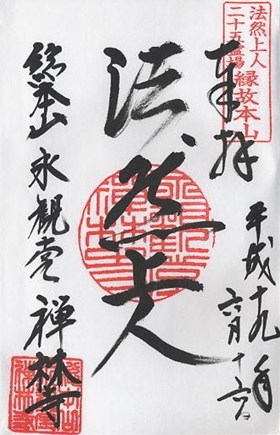 法然上人
二十五霊場
縁故本山
奉拝
平成十九年
六月十六日
法然上人
総本山 永観堂 禅林寺